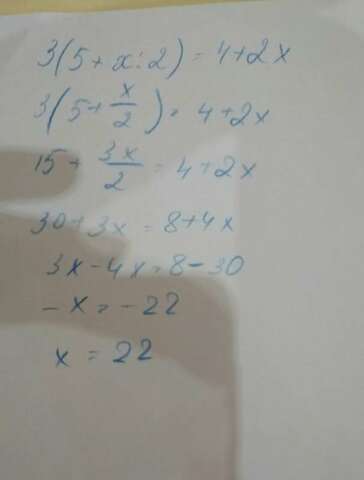 3(5+x:2)=4+2x
3(5+x/2)=4+2x
15+3x/2=4+2x
30+3x=8+4x
3x-4x=8-30
-x=-22
x=22